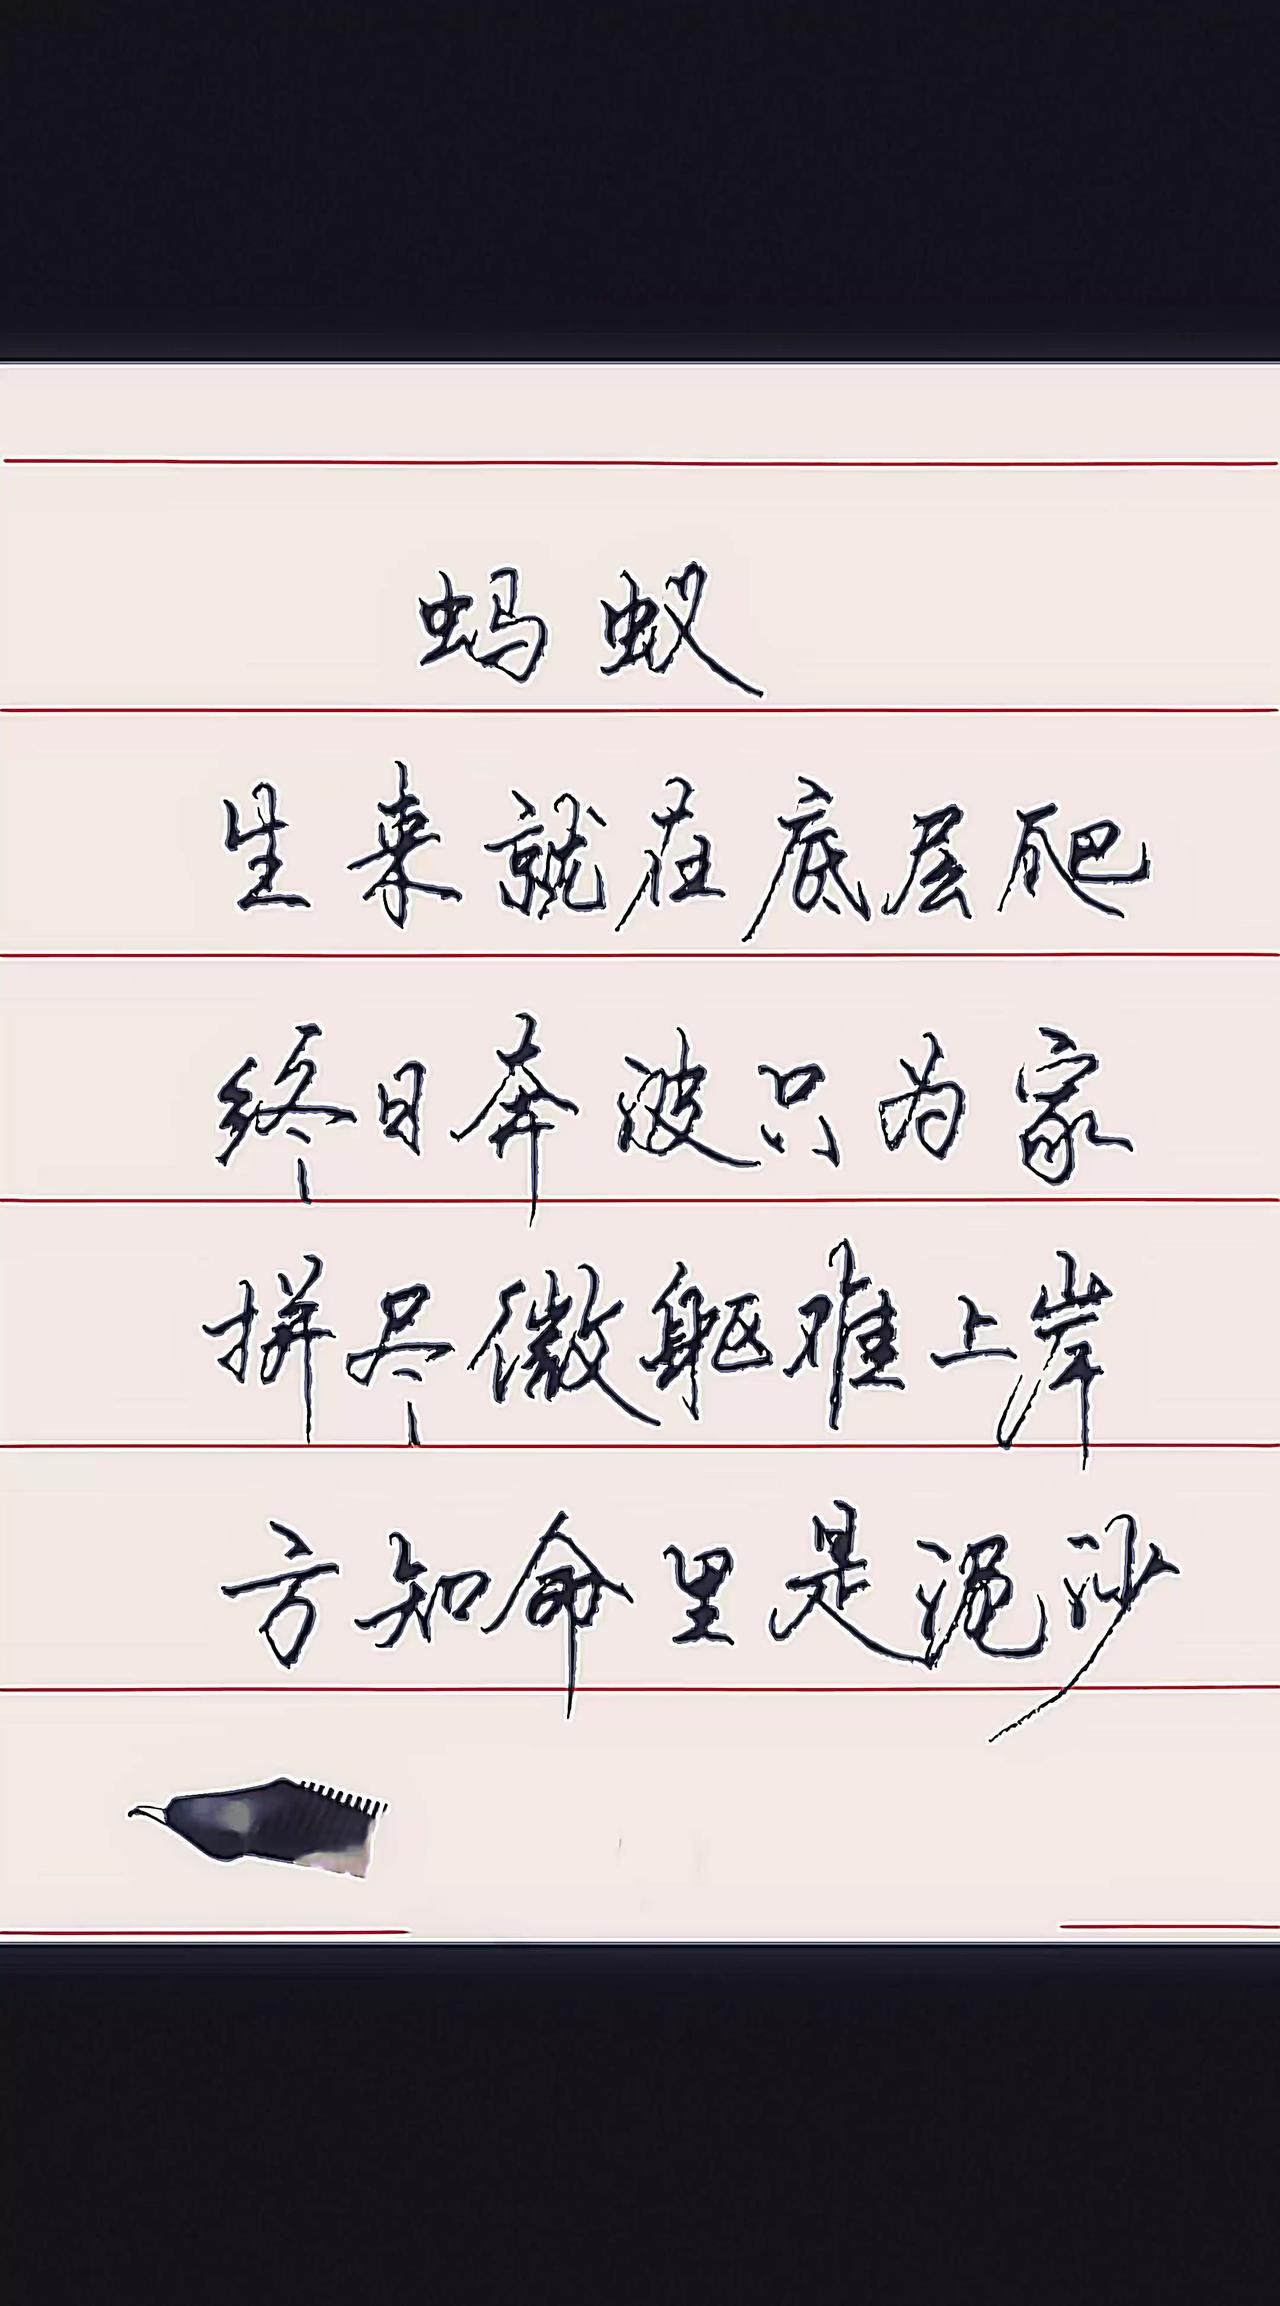 蚂蚁
生来就在底层爬
终日奔波只为家
拼尽微躯难上岸
方知命里是泥沙